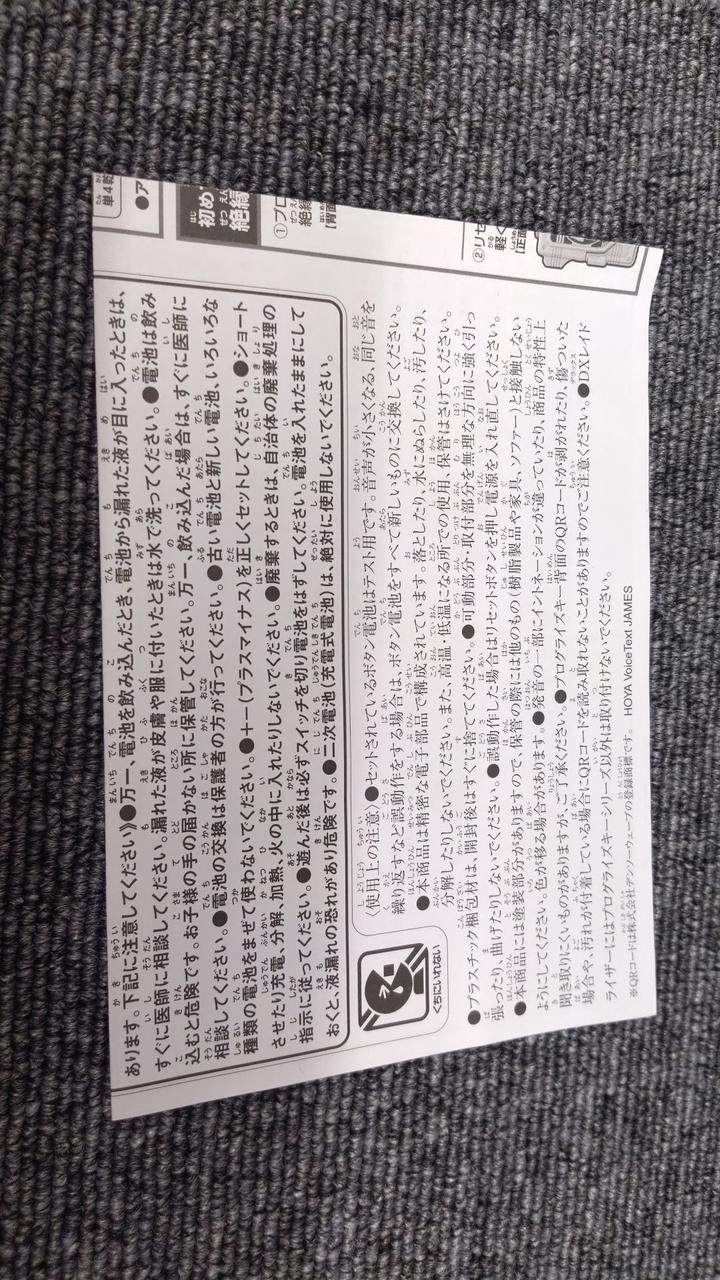 あります。下記に注意してください》●万一、電池を飲み込んだとき、電池から漏れた液が目に入ったときは、
すぐに医師に相談してください。漏れた液が皮膚や服に付いたときは水で洗ってください。●電池は飲み
込むと危険です。お子様の手の届かない所に保管してください。万一、飲み込んだ場合は、すぐに医師に
相談してください。●電池の交換は保護者の方が行ってください。●古い電池と新しい電池、いろいろな
種類の電池をまぜて使わないでください。●+-(プラスマイナス)を正しくセットしてください。●ショート
させたり充電、分解、加熱、火の中に入れたりしないでください。●廃棄するときは、自治体の廃棄処理の
指示に従ってください。●遊んだ後は必ずスイッチを切り電池をはずしてください。電池を入れたままにして
おくと、液漏れの恐れがあり危険です。●二次電池(充電式電池)は、絶対に使用しないでください。
くちにいれない
〈使用上の注意〉●セットされているボタン電池はテスト用です。音声が小さくなる、同じ音を
繰り返すなど誤動作をする場合は、ボタン電池をすべて新しいものに交換してください。
●本商品は精密な電子部品で構成されています。落としたり、水にぬらしたり、汚したり、
分解したりしないでください。また、高温・低温になる所での使用、保管はさけてください。
●プラスチック梱包材は、開封後はすぐに捨ててください。●可動部分・取付部分を無理な方向に強く引っ
張ったり、曲げたりしないでください。●誤動作した場合はリセットボタンを押し電源を入れ直してください。
●本商品には塗装部分がありますので、保管の際には他のもの(樹脂製品や家具、ソファー)と接触しない
ようにしてください。色が移る場合があります。●発音の一部にイントネーションが違っていたり、商品の特性上
聞き取りにくいものがありますが、ご了承ください。●プログライズキー背面のQRコードが剥がれたり、傷ついた
場合や、汚れが付着している場合にQRコードを読み取れないことがありますのでご注意ください。●DXレイド
ライザーにはプログライズキーシリーズ以外は取り付けないでください。
※QRコードは株式会社デンソーウェーブの登録商標です。 HOYA VoiceText JAMES
単4乾
●ア
初め
絶縁
①プロ
絶縁
【背面
②リセ
軽く
【正面